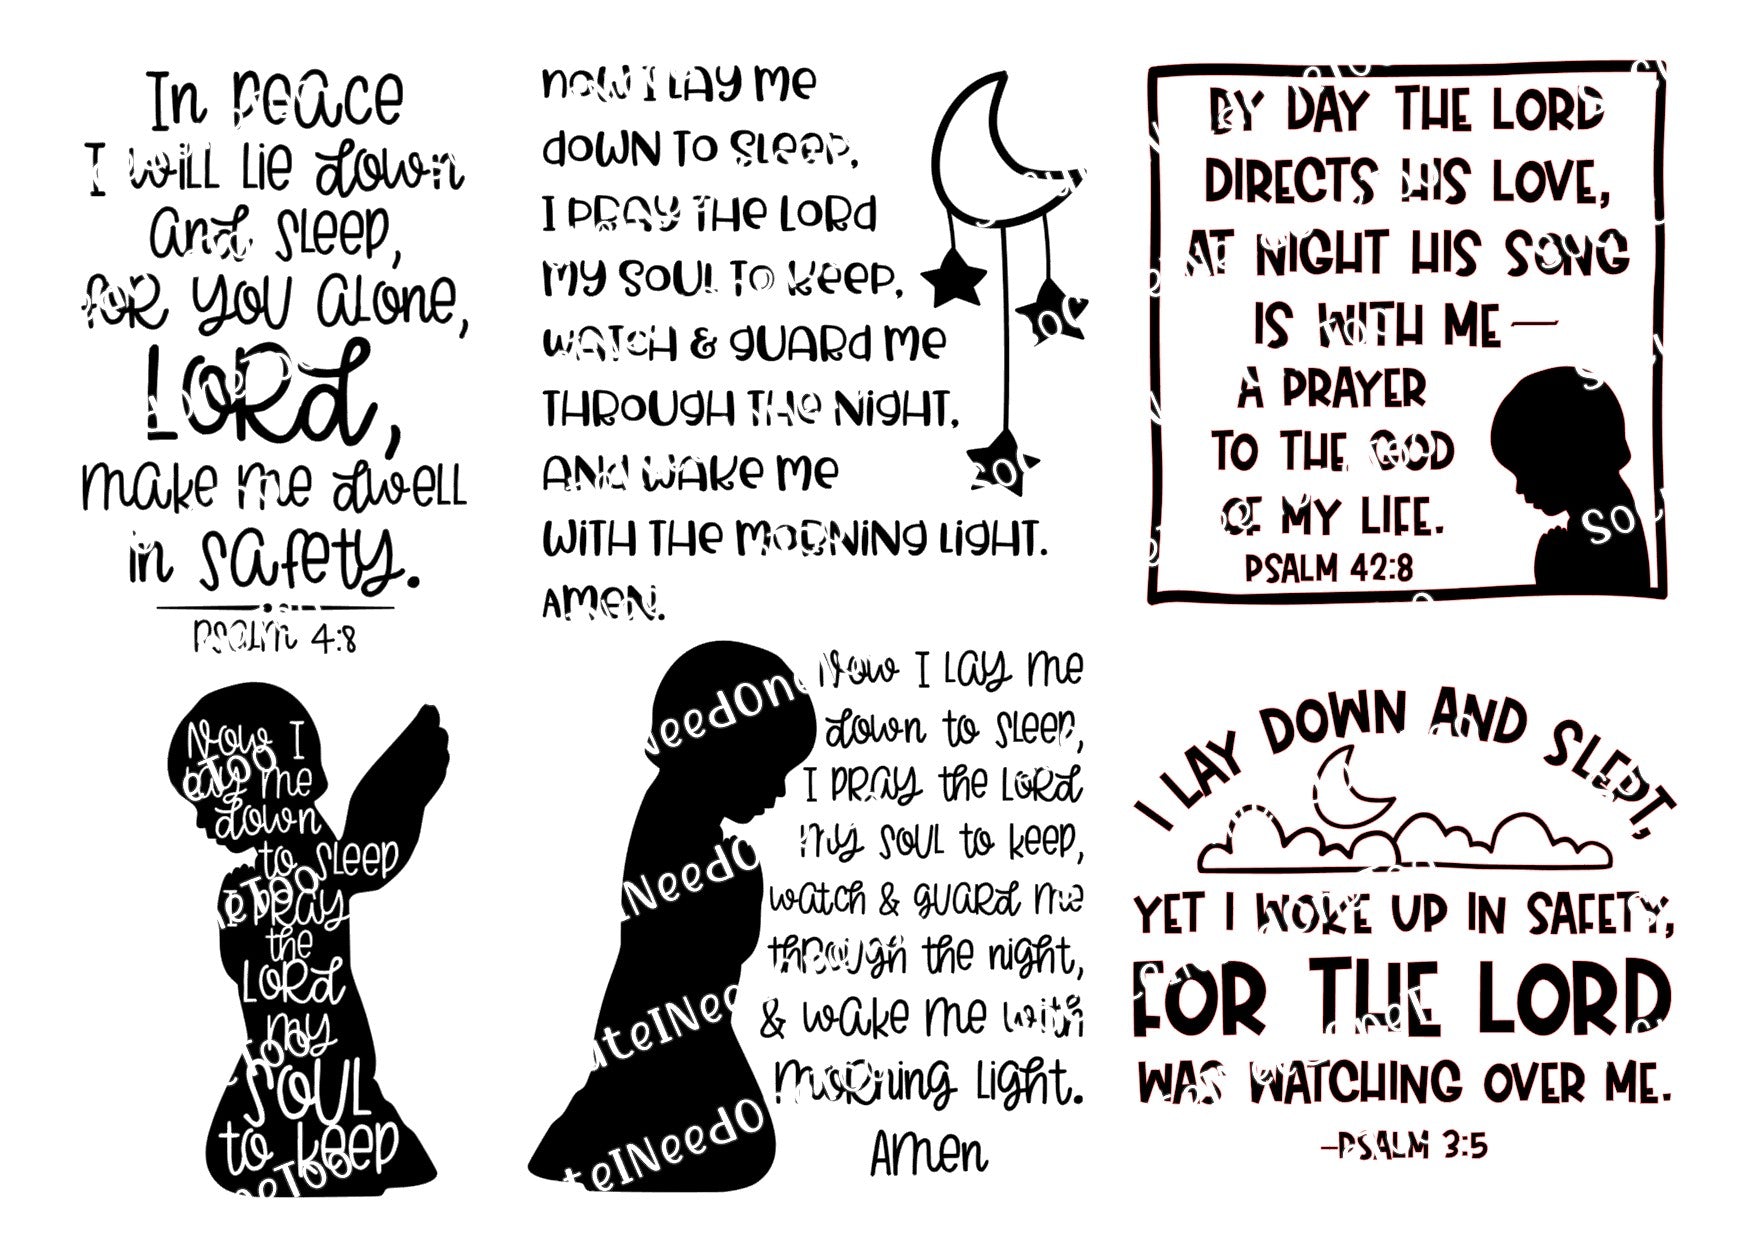 In peace
I will lie down
and sleep,
for you alone,
LORD,
make me dwell
in safety.
PSALM 4:8
NOW I LAY ME
DOWN TO SLEEP,
I PRAY THE LORD
MY SOUL TO KEEP,
WATCH & GUARD ME
THROUGH THE NIGHT,
AND WAKE ME
WITH THE MORNING LIGHT.
AMEN.
BY DAY THE LORD
DIRECTS HIS LOVE,
AT NIGHT HIS SONG
IS WITH ME—
A PRAYER
TO THE GOD
OF MY LIFE.
PSALM 42:8
Now I
lay me
down
to sleep
I PRAY
the
LORD
my
SOUL
to keep
Now I lay me
down to sleep,
I PRAY the LORD
my soul to keep,
watch & guard me
through the night,
& wake me with
morning light.
Amen
I LAY DOWN AND SLEPT,
YET I WOKE UP IN SAFETY,
FOR THE LORD
WAS WATCHING OVER ME.
—PSALM 3:5